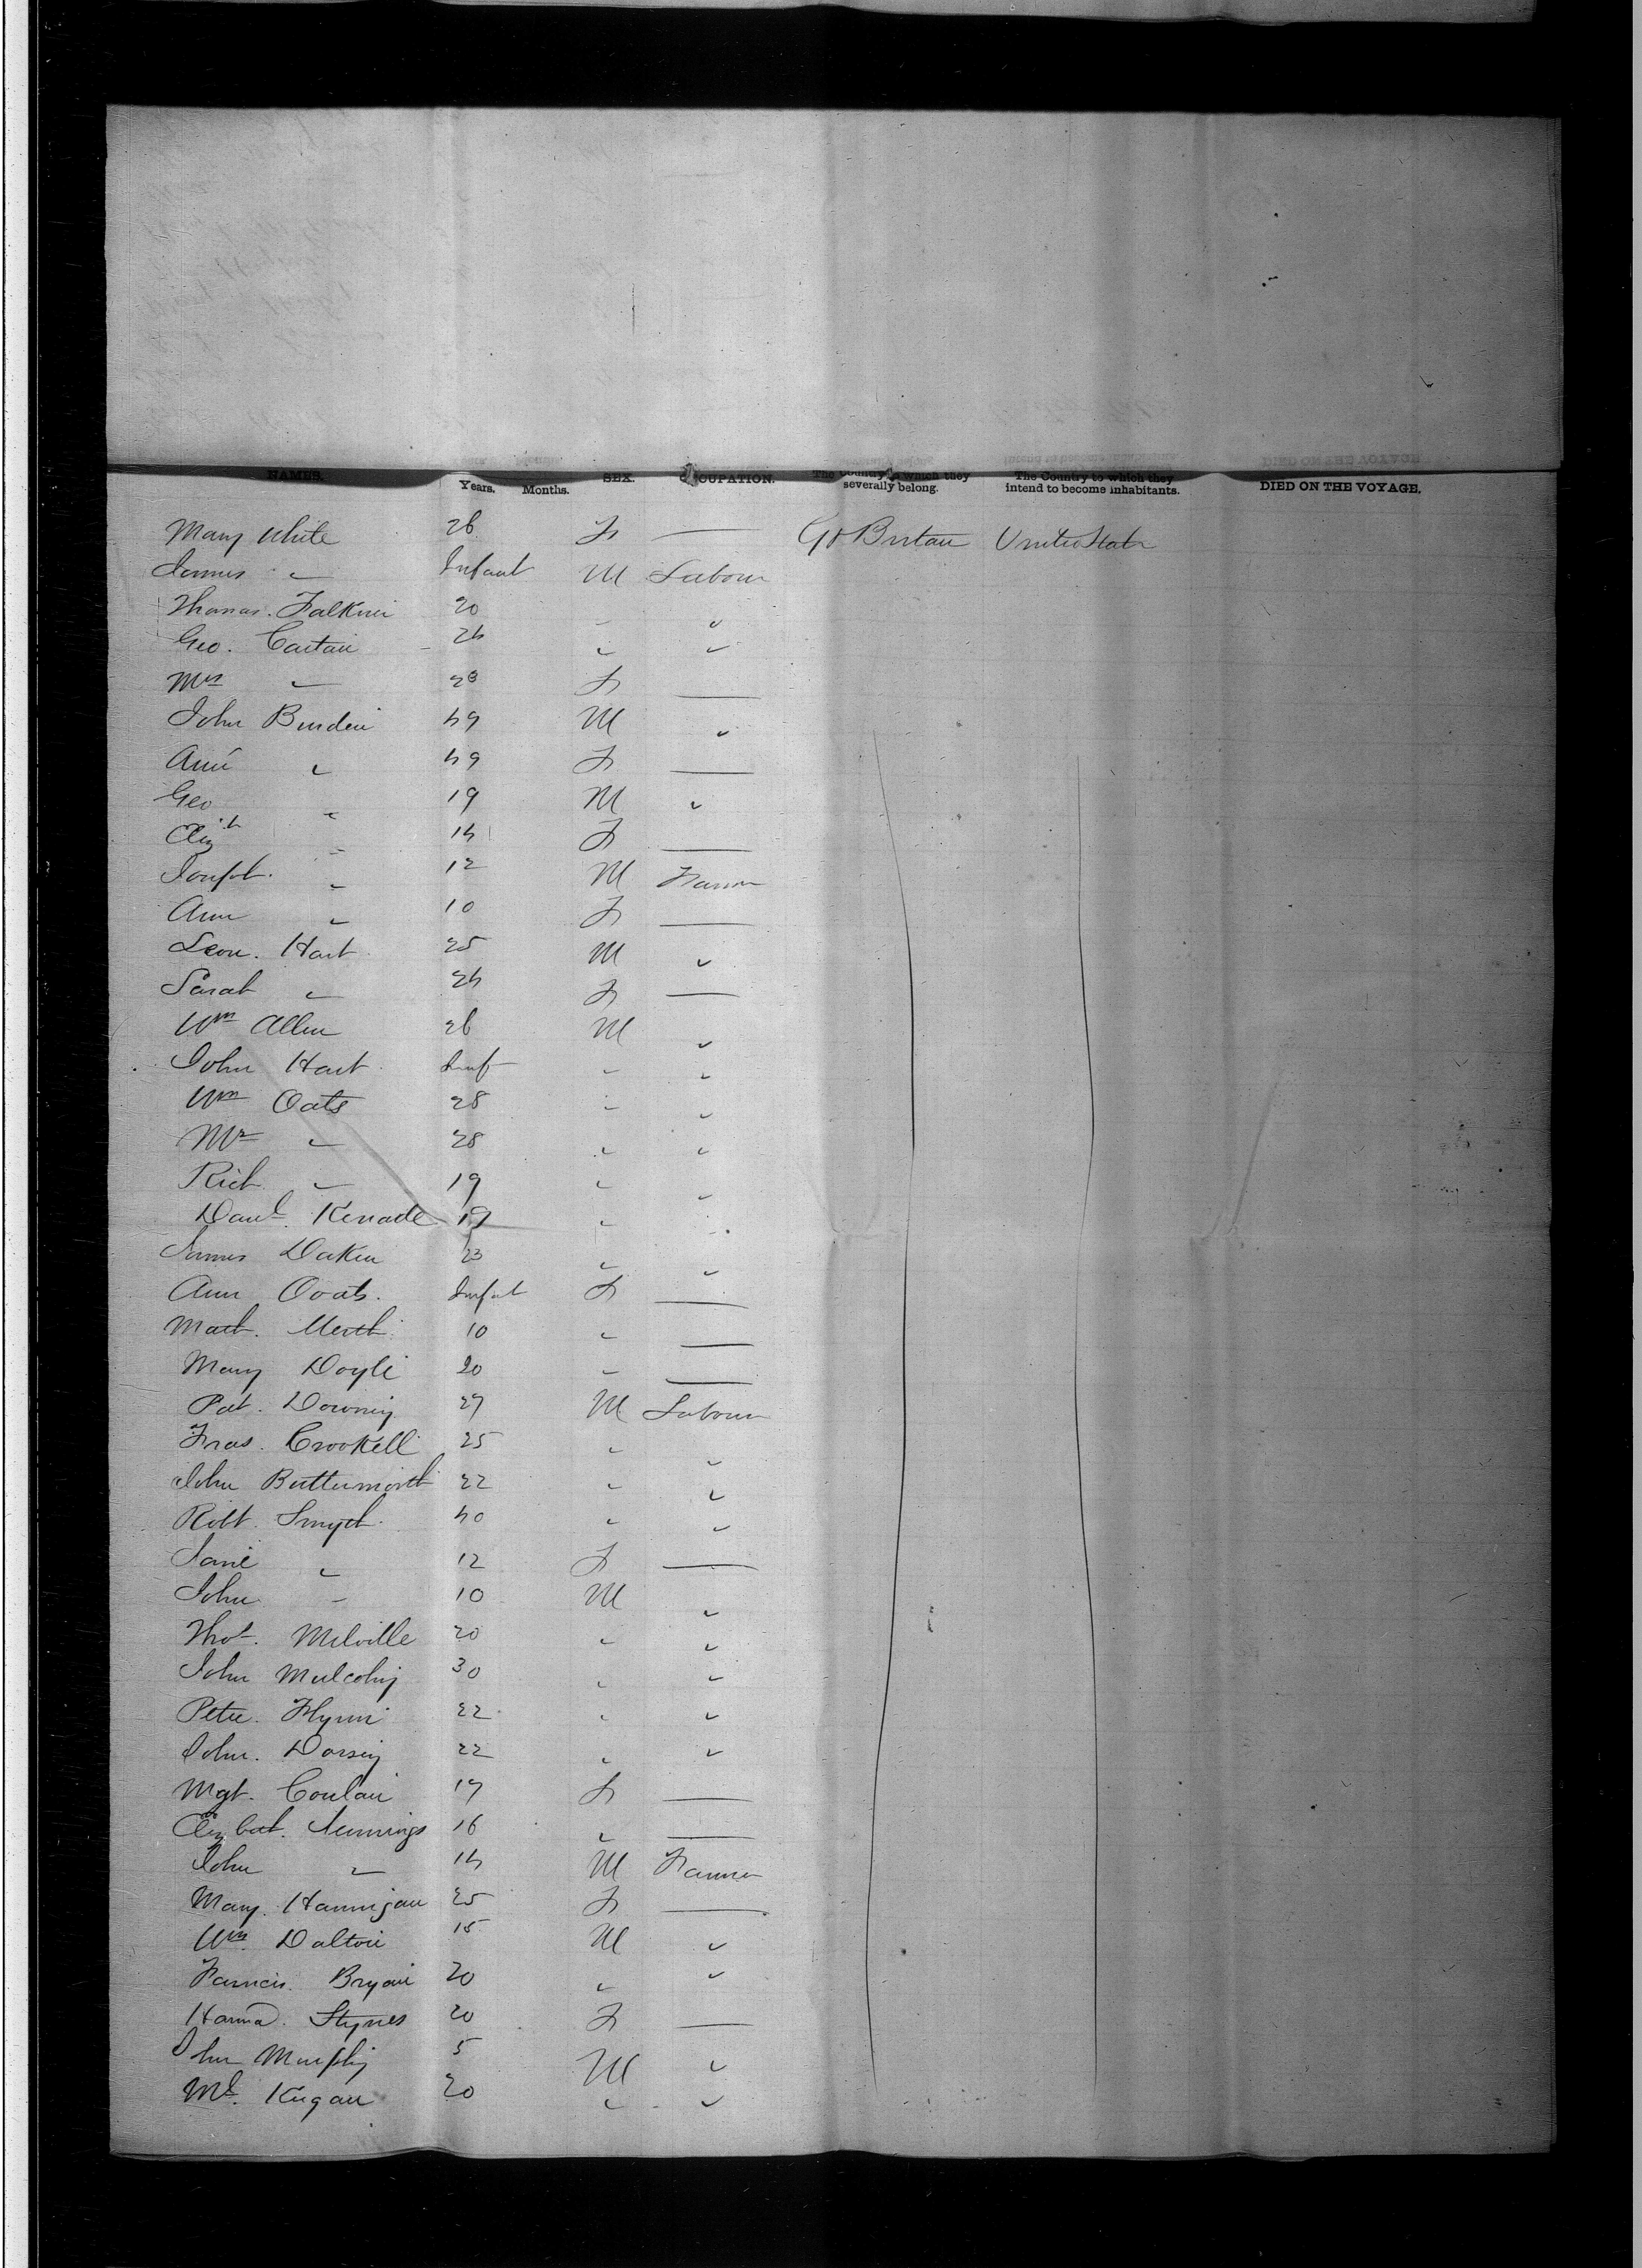 NAMES. Years. Months. SEX. OCCUPATION. The Country to which they severally belong. The Country to which they intend to become inhabitants. DIED ON THE VOYAGE.
Mary White 26 F — Gt Britain United States
James " Infant M Labour
Thomas. Falkner 20 " "
Geo. 24 " "
Mrs " 28 F —
John Burden 49 M "
Ann " 49 F —
Geo " 19 M "
Elizth " 14 F —
Joseph. " 12 M Farmer
Ann " 10 F —
Leon. Hart 25 M "
Sarah " 24 F —
Wm Allen 26 M "
John Hart Inft " "
Wm Oats 28 " "
Mr " 28 " "
Rich " 19 " "
Danl. 19 "
James Dakin 23 " "
Ann Oats. Infant F —
10 " —
Mary Doyle 20 " —
Pat. Downey 27 M Labour
Fras. Crookell 25 " "
John Butterworth 22 " "
Robt. Smyth 40 " "
Jane " 12 F —
John " 10 M "
Thos. Melville 20 " "
John Mulcahy 30 " "
Peter. Flynn 22 " "
John. Dorsey 22 " "
Mgt. Conlan 17 F —
Elizbet. Jennings 16 " —
John " 14 M Farmer
Mary. Hannigan 25 F —
Wm. Dalton 15 M "
Francis. Bryan 20 " "
Hanna. Stynes 20 F —
John Murphy 5 M "
Ml. Keegan 20 " "